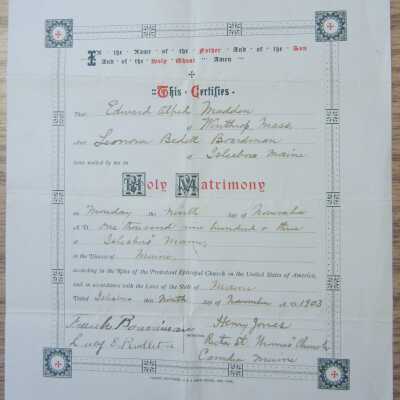 In the Name of the Father And of the Son
And of the Holy Ghost Amen
This Certifies
That Edward Maddon
of Winthrop Mass
And Leonora Boardman
of Islesboro Maine
were united by me in
Holy Matrimony
on Monday the Ninth day of November
A.D. one thousand nine hundred & three
at Islesboro Maine
in the Diocese of Maine
according to the Rites of the Protestant Episcopal Church in the United States of America,
and in accordance with the Laws of the State of Maine
Dated Islesboro this Ninth day of November A.D. 1903
Henry Jones
Rector St. Church
Camden Maine